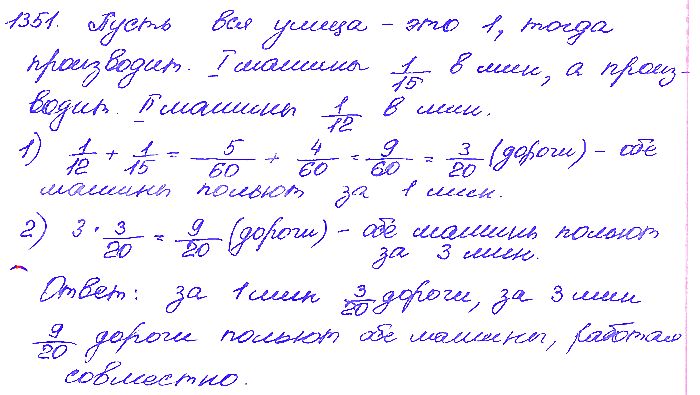 1351. Пусть вся улица – это 1, тогда
производит. I машины 1/15 в мин, а произ-
водит. II машины 1/12 в мин.
1) 1/12 + 1/15 = 5/60 + 4/60 = 9/60 = 3/20 (дороги) – обе
машины польют за 1 мин.
2) 3 · 3/20 = 9/20 (дороги) – обе машины польют
за 3 мин.
Ответ: за 1 мин 3/20 дороги, за 3 мин
9/20 дороги польют обе машины, работая
совместно.